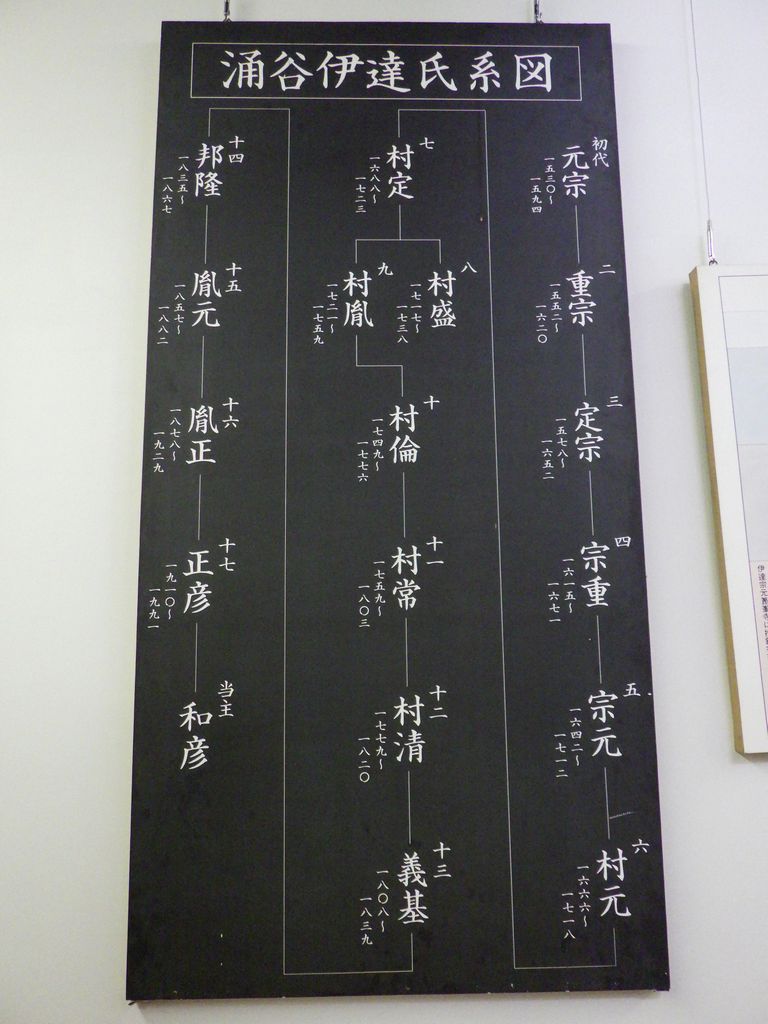 涌谷伊達氏系図
初代
元宗
一五三〇〜
一五九四
二
重宗
一五五二〜
一六二〇
三
定宗
一五七八〜
一六五二
四
宗重
一六一五〜
一六七一
五
宗元
一六四二〜
一七一二
六
村元
一六六六〜
一七一八
七
村定
一六八八〜
一七二三
八
村盛
一七一七〜
一七三八
九
村胤
一七二一〜
一七五九
十
村倫
一七四九〜
一七七六
十一
村常
一七五九〜
一八〇三
十二
村清
一七七九〜
一八二〇
十三
義基
一八〇八〜
一八三九
十四
邦隆
一八三五〜
一八六七
十五
胤元
一八五七〜
一八八二
十六
胤正
一八七八〜
一九二九
十七
正彦
一九一〇〜
一九九一
当主
和彦
伊達宗元